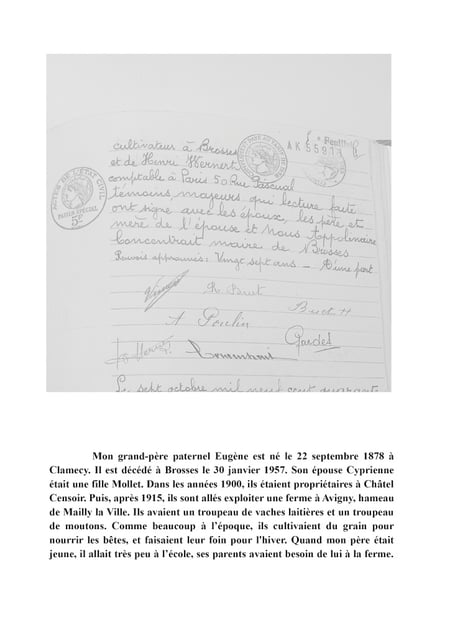 cultivateur à Brosses
et de Henri Hernert
comptable à Paris 50 Rue Pascual
témoins, majeurs qui lecture faite
ont signé avec les époux, les père et
mère de l'épouse et Nous Appolinaire
Concontrait maire de Brosses
approuvés: Vingt sept ans _ D'une part
AK 55913
ACTES DE L'ETAT CIVIL
PAPIER SPECIAL
R. Buet
Buet H
A Poulin
Gardet
Le sept octobre mil neuf cent quarante
Mon grand-père paternel Eugène est né le 22 septembre 1878 à
Clamecy. Il est décédé à Brosses le 30 janvier 1957. Son épouse Cyprienne
était une fille Mollet. Dans les années 1900, ils étaient propriétaires à Châtel
Censoir. Puis, après 1915, ils sont allés exploiter une ferme à Avigny, hameau
de Mailly la Ville. Ils avaient un troupeau de vaches laitières et un troupeau
de moutons. Comme beaucoup à l'époque, ils cultivaient du grain pour
nourrir les bêtes, et faisaient leur foin pour l'hiver. Quand mon père était
jeune, il allait très peu à l'école, ses parents avaient besoin de lui à la ferme.